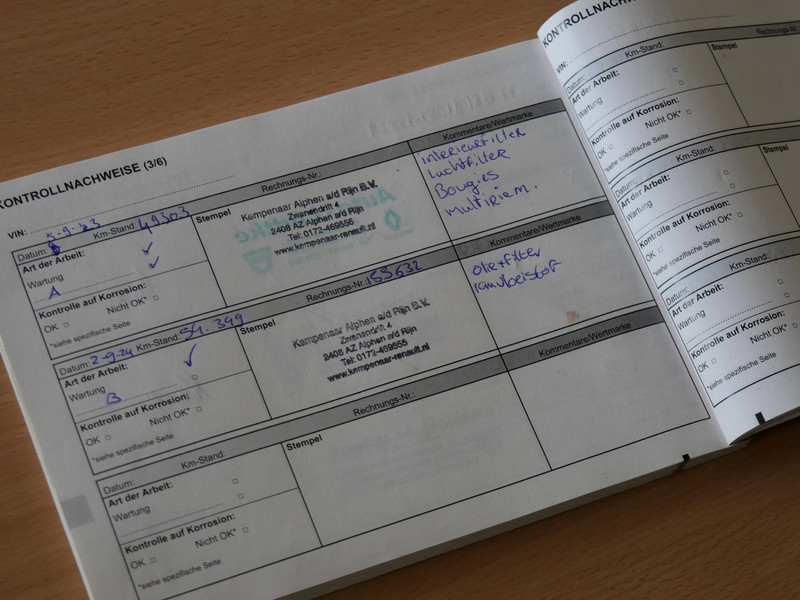 KONTROLLNACHWEISE (3/6)
VIN:
Datum: 5-9-23 Km-Stand: 49303
Rechnungs-Nr.:
Kommentare/Wertmarke
Art der Arbeit:
Wartung
A
Kontrolle auf Korrosion:
OK Nicht OK*
*siehe spezifische Seite
Stempel
Kempenaar Alphen a/d Rijn B.V.
Zwenendrift 4
2408 AZ Alphen a/d Rijn
Tel: 0172-469555
www.kempenaar-renault.nl
interieurfilter
luchtfilter
Bougies
multiriem.
Datum: 2-9-24 Km-Stand: 51.399
Rechnungs-Nr. 155632
Kommentare/Wertmarke
Art der Arbeit:
Wartung
B
Kontrolle auf Korrosion:
OK Nicht OK*
*siehe spezifische Seite
Stempel
Kempenaar Alphen a/d Rijn B.V.
Zwenendrift 4
2408 AZ Alphen a/d Rijn
Tel: 0172-469555
www.kempenaar-renault.nl
oliefilter
Datum: Km-Stand:
Rechnungs-Nr.:
Kommentare/Wertmarke
Art der Arbeit:
Wartung
Kontrolle auf Korrosion:
OK Nicht OK*
*siehe spezifische Seite
Stempel
KONTROLLNACHW
VIN:
Datum: Km-Stand:
Rechnungs-Nr.
Art der Arbeit:
Wartung
Kontrolle auf Korrosion:
OK Nicht OK*
*siehe spezifische Seite
Stempel
Datum: Km-Stand:
Art der Arbeit:
Wartung
Kontrolle auf Korrosion:
OK Nicht OK*
*siehe spezifische Seite
Stempel
Datum: Km-Stand:
Art der Arbeit:
Wartung
Kontrolle auf Korrosion:
OK Nicht OK*
*siehe spezifische Seite
Stempel